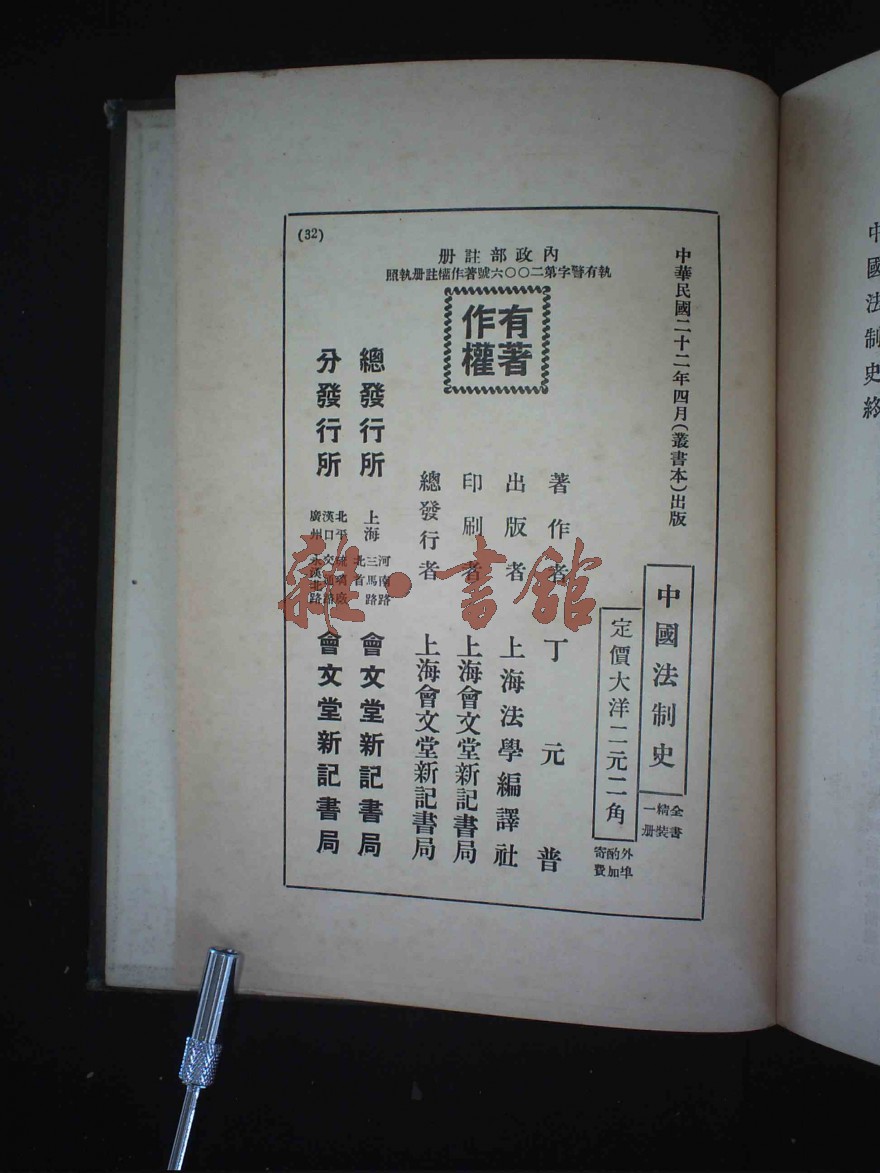 中國法制史終
中華民國二十二年四月(叢書本)出版
中國法制史
全書精裝一册
定價大洋二元二角
外埠酌加寄費
內政部註册
執有警字第二〇〇六號著作權註册執照
有著作權
著作者 丁元普
出版者 上海法學編譯社
印刷者 上海會文堂新記書局
總發行者 上海會文堂新記書局
總發行所 上海河南路三馬路北首 會文堂新記書局
分發行所 北平琉璃廠 漢口交通路 廣州永漢北路 會文堂新記書局
(32)
雜·書館